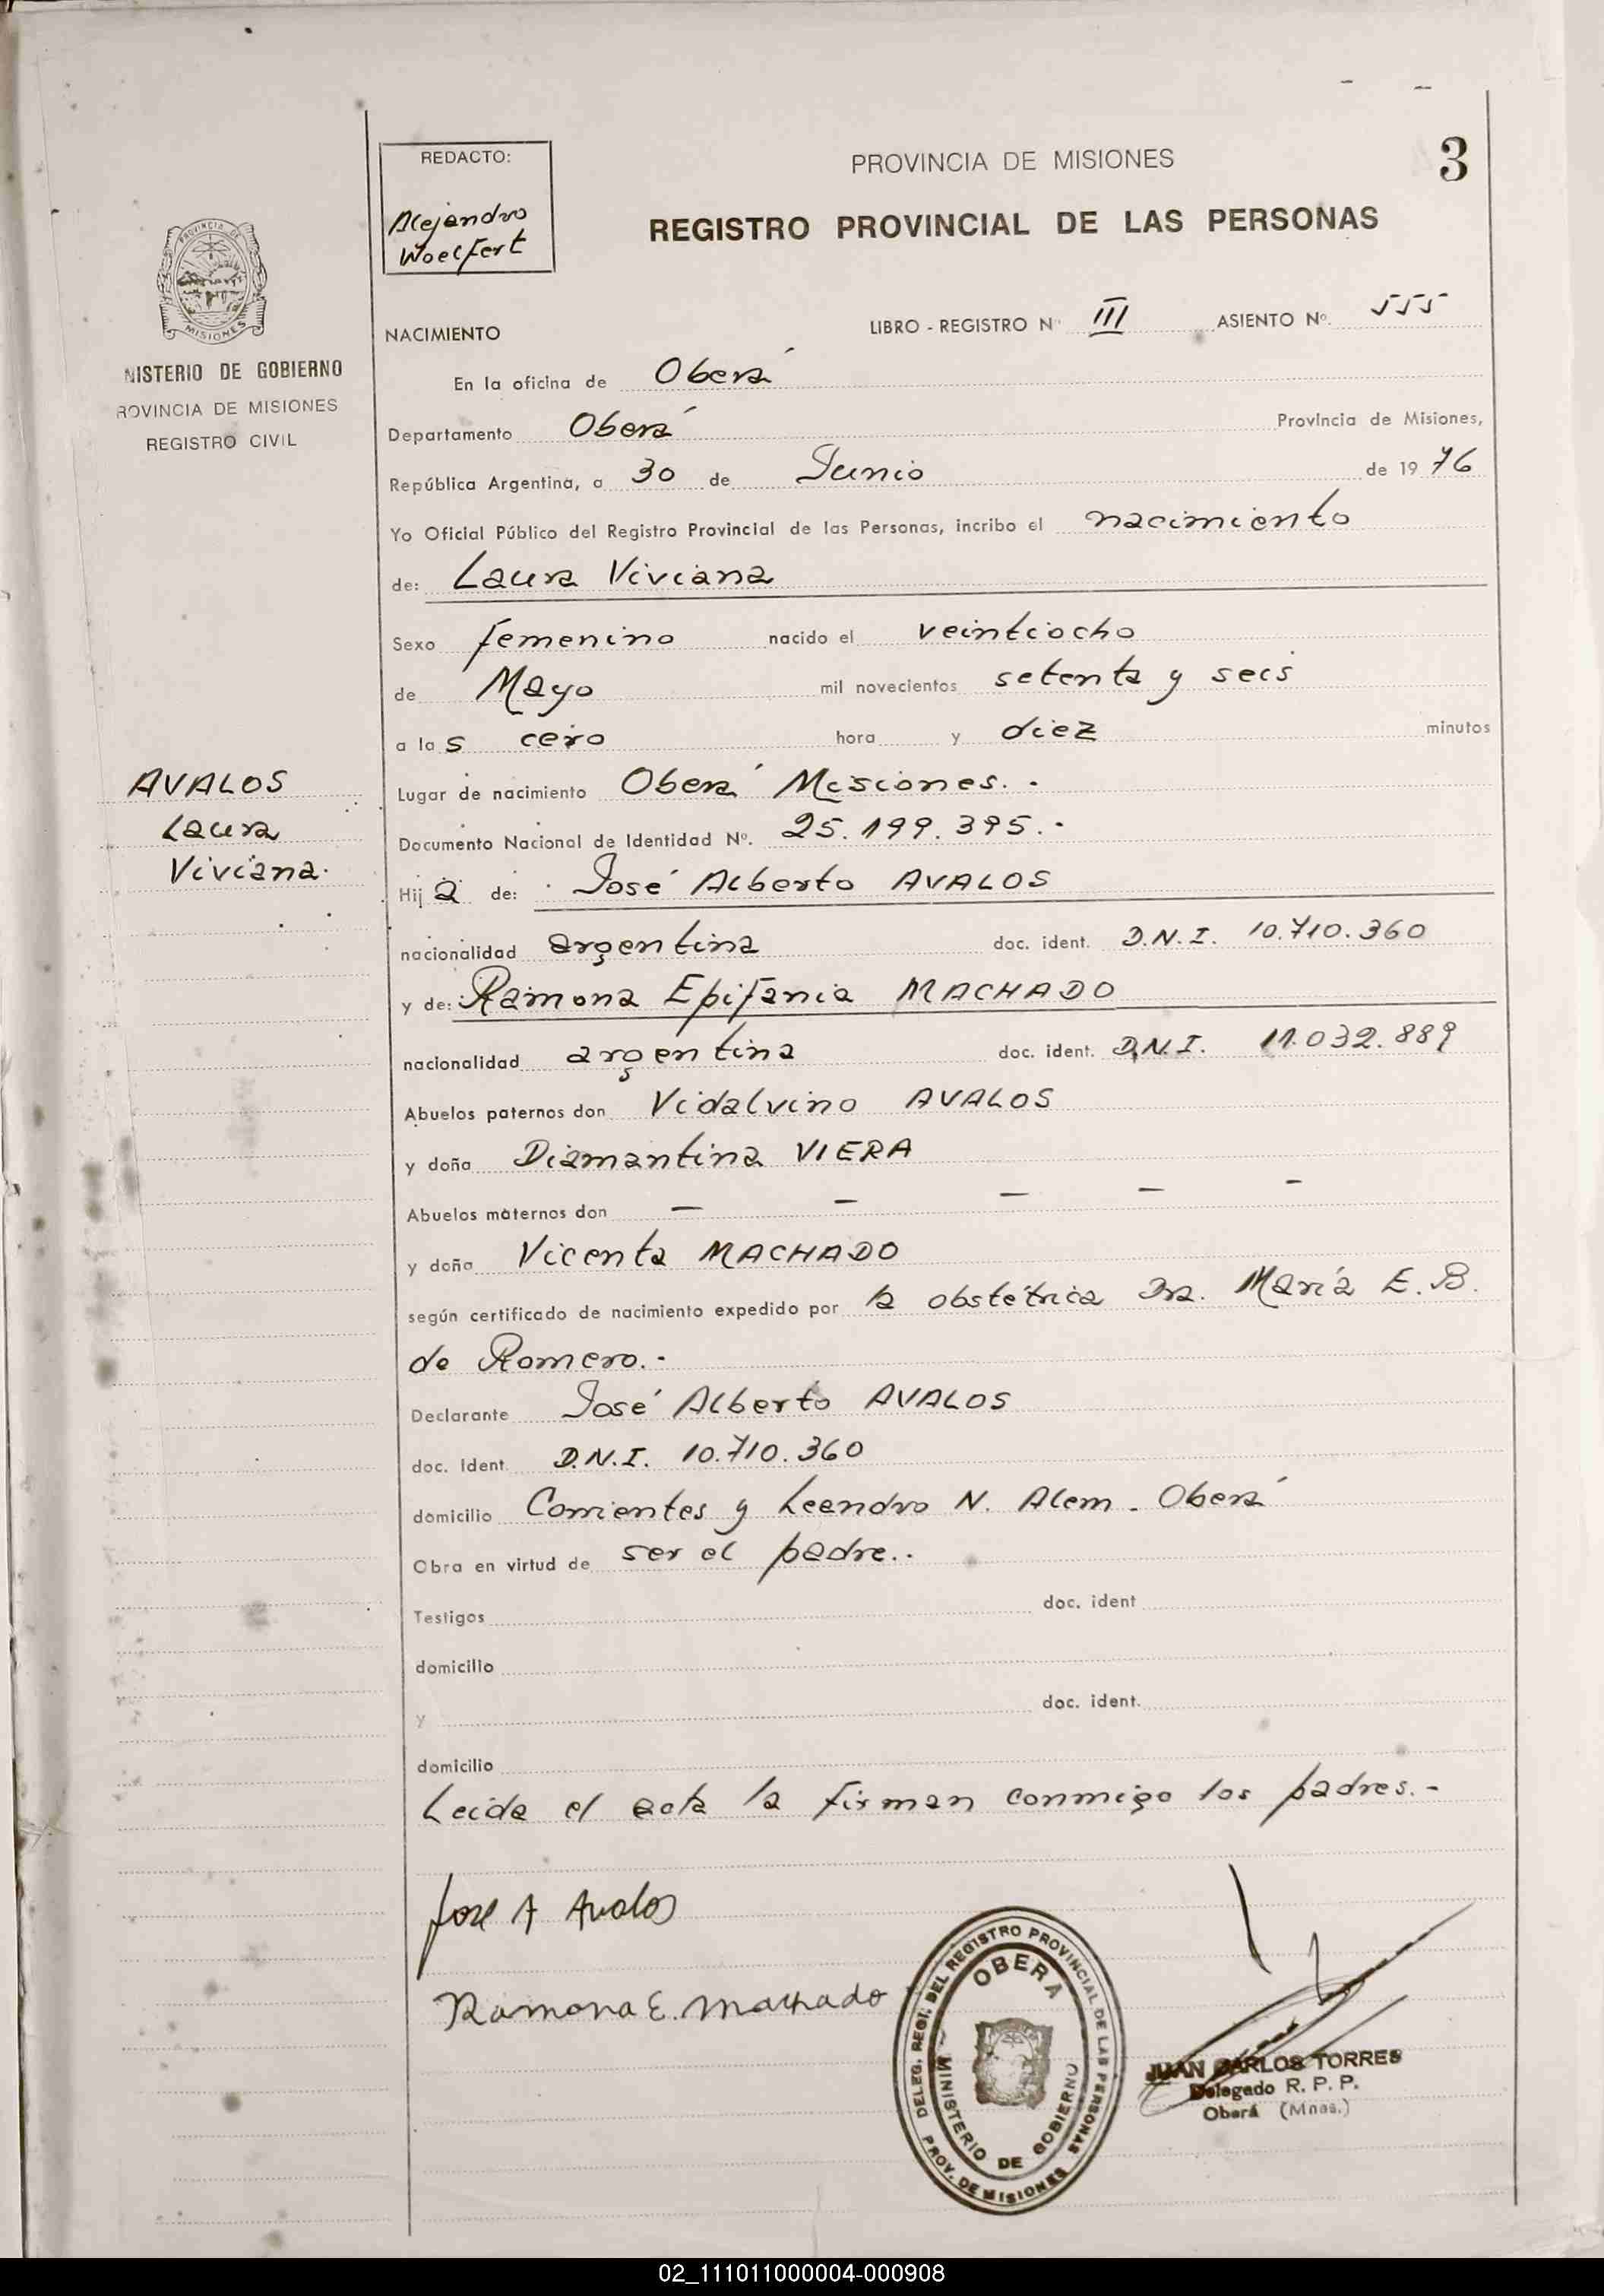 REDACTO:
Alejandro
Woelfert
PROVINCIA DE MISIONES
3
REGISTRO PROVINCIAL DE LAS PERSONAS
PROVINCIA DE
MISIONES
NISTERIO DE GOBIERNO
ROVINCIA DE MISIONES
REGISTRO CIVIL
NACIMIENTO LIBRO - REGISTRO Nº III ASIENTO Nº. 555
En la oficina de Oberá
Departamento Oberá Provincia de Misiones,
República Argentina, a 30 de Junio de 19 76
Yo Oficial Público del Registro Provincial de las Personas, incribo el nacimiento
de: Laura Viviana
Sexo femenino nacido el veintiocho
de Mayo mil novecientos setenta y seis
a las cero hora y diez minutos
AVALOS
Laura
Viviana.
Lugar de nacimiento Oberá Misiones. -
Documento Nacional de Identidad Nº. 25.199.395.-
Hija de: José Alberto AVALOS
nacionalidad argentina doc. ident. D.N.I. 10.710.360
y de: Ramona Epifania MACHADO
nacionalidad argentina doc. ident. D.N.I. 11.032.889
Abuelos paternos don Vidalvino AVALOS
y doña Diamantina VIERA
Abuelos maternos don — — — — —
y doña Vicenta MACHADO
según certificado de nacimiento expedido por la obstétrica Dra. María E. B.
de Romero.-
Declarante José Alberto AVALOS
doc. Ident. D.N.I. 10.710.360
domicilio Corrientes y Leandro N. Alem - Oberá
Obra en virtud de ser el padre.-
Testigos doc. ident
domicilio
y doc. ident.
domicilio
Leida el acta la firman conmigo los padres.-
José A Avalos
Ramona E. Machado
DELEG. REGI. DEL REGISTRO PROVINCIAL DE LAS PERSONAS
OBERA
MINISTERIO DE GOBIERNO
PROV. DE MISIONES
JUAN CARLOS TORRES
Delegado R. P. P.
Oberá (Mnes.)
02_111011000004-000908